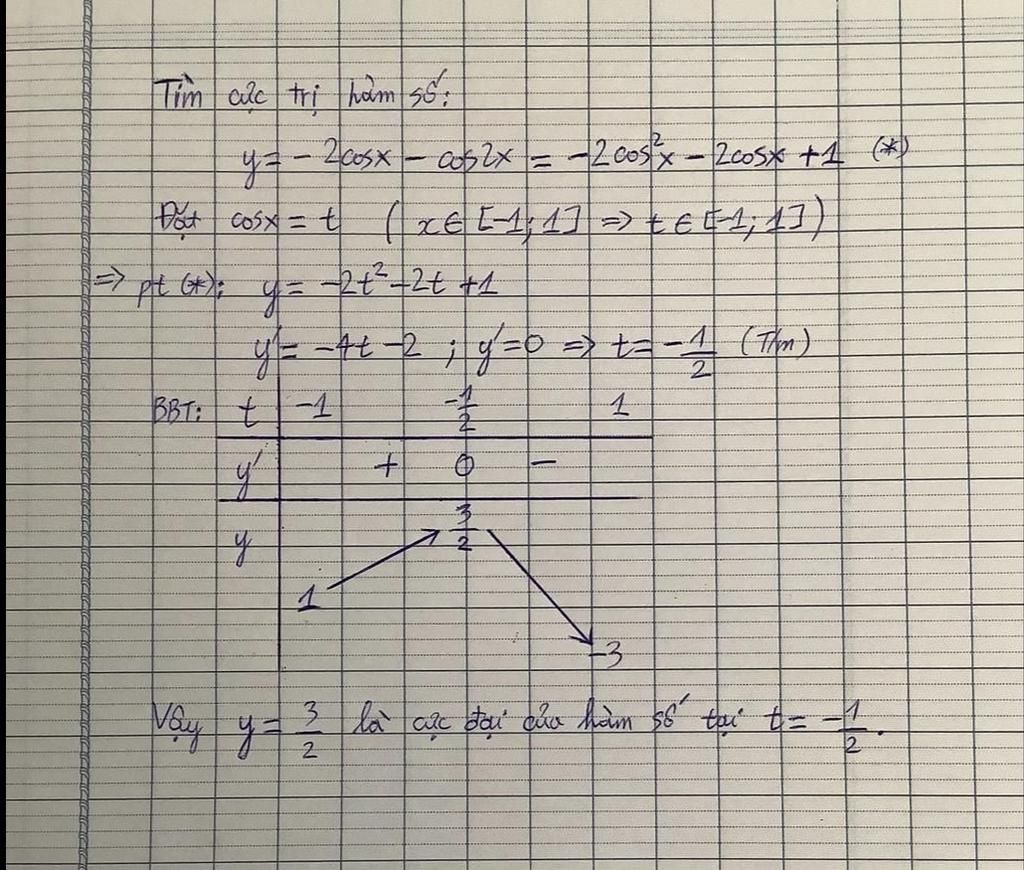 Tìm cực trị hàm số:
y = - 2cosx - cos2x = -2cos²x - 2cosx + 1 (*)
Đặt cosx = t ( x ∈ [-1; 1] => t ∈ [-1; 1] )
=> pt (*): y = -2t² - 2t + 1
y' = -4t - 2 ; y' = 0 => t = -1/2 (T/m)
BBT: t -1 -1/2 1
y' + 0 -
y 3/2
1
-3
Vậy y = 3/2 là cực đại của hàm số tại t = -1/2.